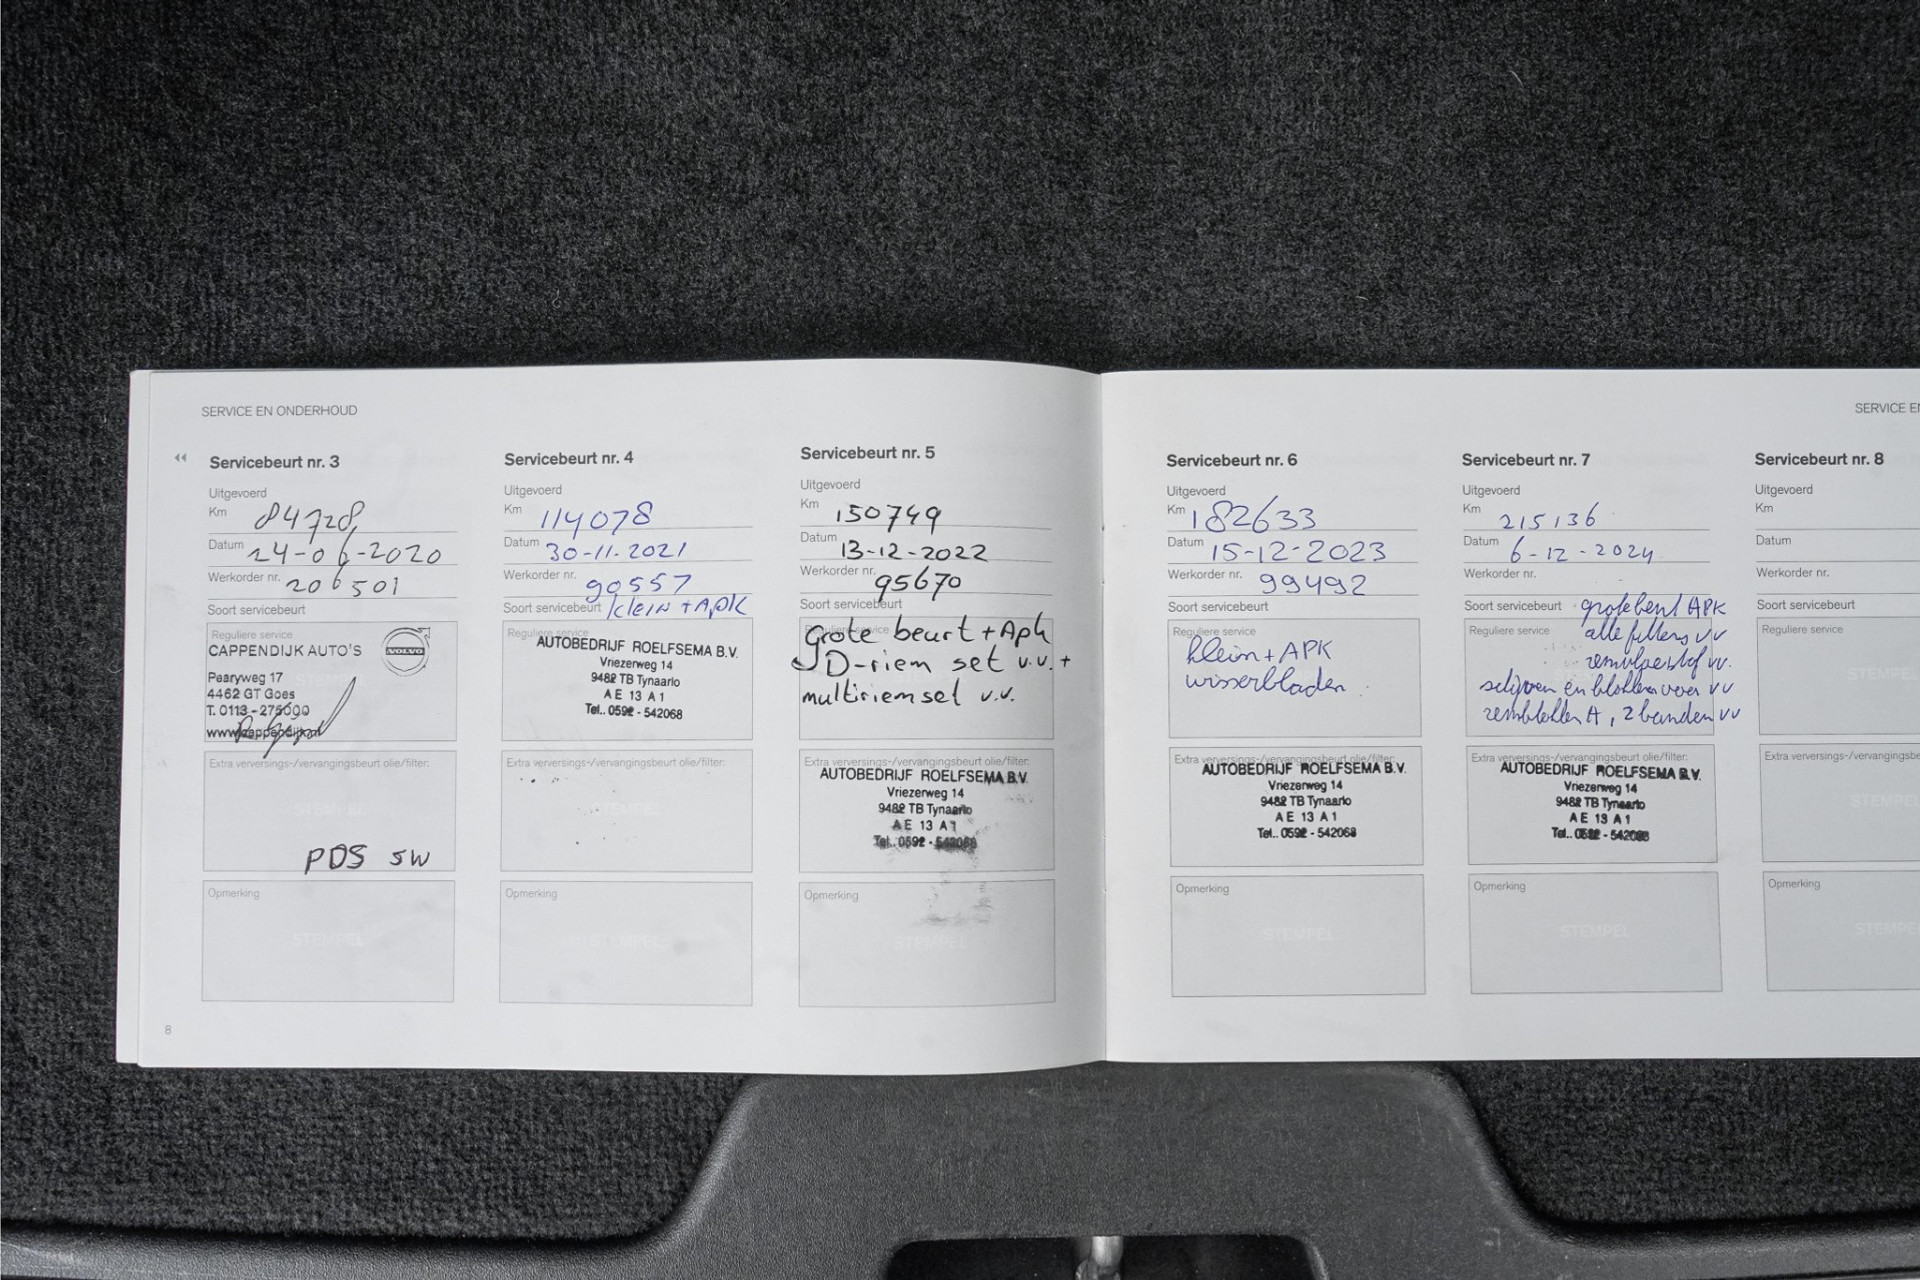 SERVICE EN ONDERHOUD
Servicebeurt nr. 3
Uitgevoerd
Km 84728
Datum 24-06-2020
Werkorder nr. 206501
Soort servicebeurt
Reguliere service
CAPPENDIJK AUTO'S
VOLVO
Pearyweg 17
4462 GT Goes
T. 0113 - 275000
www.cappendijk.nl
Extra verversings-/vervangingsbeurt olie/filter:
STEMPEL
PDS SW
Opmerking
STEMPEL
8
Servicebeurt nr. 4
Uitgevoerd
Km 114078
Datum 30-11-2021
Werkorder nr. 90557
Soort servicebeurt klein + APK
Reguliere service
AUTOBEDRIJF ROELFSEMA B.V.
Vriezerweg 14
9482 TB Tynaarlo
AE 13 A1
Tel.. 0592 - 542068
Extra verversings-/vervangingsbeurt olie/filter:
Opmerking
STEMPEL
Servicebeurt nr. 5
Uitgevoerd
Km 150749
Datum 13-12-2022
Werkorder nr. 95670
Soort servicebeurt
Reguliere service
Grote beurt + Apk
D-riem set v.v. +
multiriemset v.v.
Extra verversings-/vervangingsbeurt olie/filter:
AUTOBEDRIJF ROELFSEMA B.V.
Vriezerweg 14
9482 TB Tynaarlo
AE 13 A1
Tel.. 0592 - 542068
Opmerking
STEMPEL
SERVICE
Servicebeurt nr. 6
Uitgevoerd
Km 182633
Datum 15-12-2023
Werkorder nr. 99492
Soort servicebeurt
Reguliere service
klein + APK
wisserbladen
Extra verversings-/vervangingsbeurt olie/filter:
AUTOBEDRIJF ROELFSEMA B.V.
Vriezerweg 14
9482 TB Tynaarlo
AE 13 A1
Tel.. 0592 - 542068
Opmerking
STEMPEL
Servicebeurt nr. 7
Uitgevoerd
Km 215136
Datum 6-12-2024
Werkorder nr.
Soort servicebeurt grote beurt APK
Reguliere service alle filters vv
remvloeistof vv.
schijven en blokken voor vv
remblokken A, 2 banden vv
Extra verversings-/vervangingsbeurt olie/filter:
AUTOBEDRIJF ROELFSEMA B.V.
Vriezerweg 14
9482 TB Tynaarlo
AE 13 A1
Tel.. 0592 - 542068
Opmerking
STEMPEL
Servicebeurt nr. 8
Uitgevoerd
Km
Datum
Werkorder nr.
Soort servicebeurt
Reguliere service
Extra verversings-/vervangingsbe
Opmerking